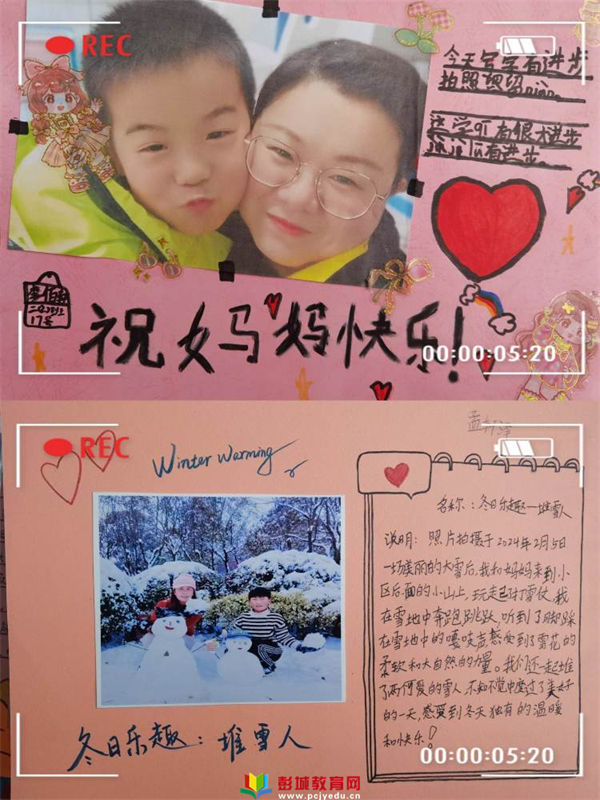 REC
今天字写有进步
拍照现留
祝妈妈快乐!
17号
00:00:05:20
REC
Winter Warming
名称：冬日乐趣—堆雪人
说明：照片拍摄于2024年2月5日
一场美丽的大雪后，我和妈妈来到小
区后面的小山上，玩起了打雪仗，我
在雪地中奔跑跳跃，听到了脚踩
在雪地中的嘎吱声，感受到了雪花的
柔软和大自然的力量。我们还一起堆
了两个可爱的雪人，不知不觉中度过了美好
的一天，感受到冬天独有的温暖
和快乐！
冬日乐趣：堆雪人
00:00:05:20
彭城教育网
www.pcjyedu.cn